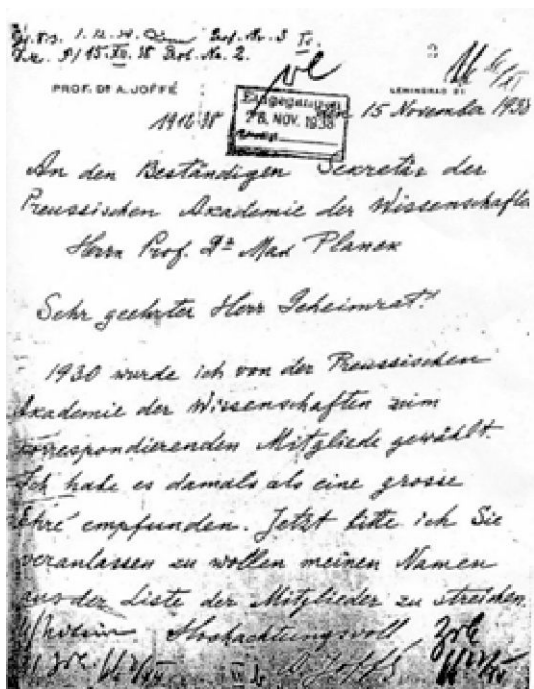 1. 12. 38.
15. XII. 38 Prot. No. 2.
PROF. Dr A. JOFFÉ
LENINGRAD 21
1916/38
Eingegangen
28. NOV. 1938
den 15 November 1938
An den Beständigen Sekretär der
Preussischen Akademie der Wissenschaften
Herrn Prof. Dr Max Planck
Sehr geehrter Herr Geheimrat!
1930 wurde ich von der Preussischen
Akademie der Wissenschaften zum
korrespondierenden Mitgliede gewählt.
Ich habe es damals als eine grosse
Ehre empfunden. Jetzt bitte ich Sie
veranlassen zu wollen meinen Namen
aus der Liste der Mitglieder zu streichen.
Hochachtungsvoll
A. Joffé